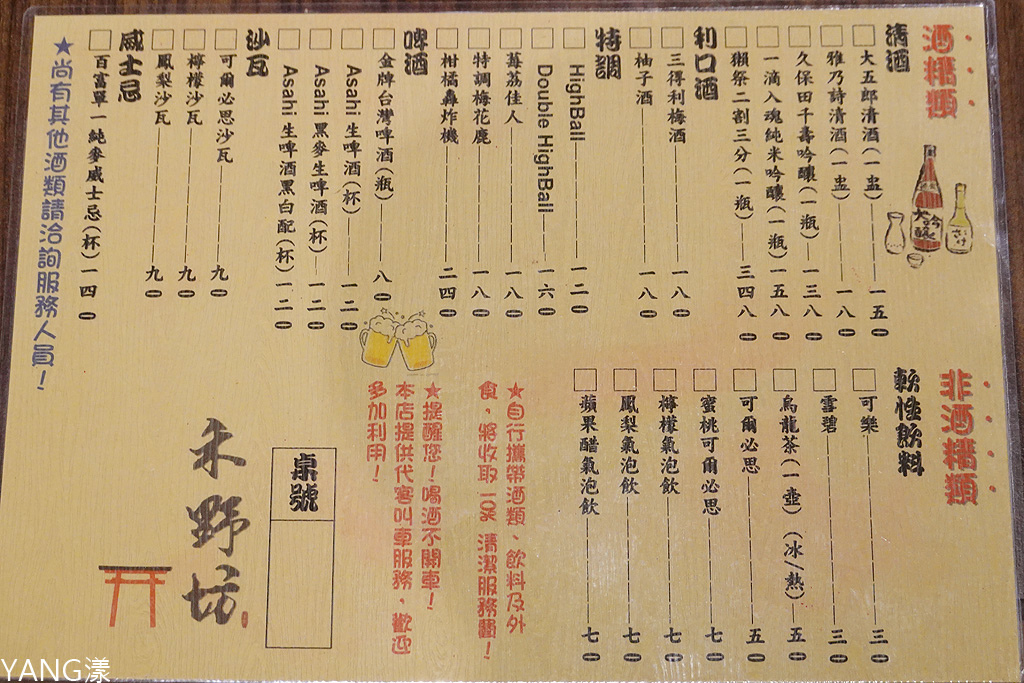 酒精類
清酒
大五郎清酒(一盅) 一五0
雅乃詩清酒(一盅) 一八0
久保田千壽吟釀(一瓶) 一三八0
一滴入魂純米吟釀(一瓶) 一五八0
獺祭二割三分(一瓶) 三四八0
利口酒
三得利梅酒 一八0
柚子酒 一八0
特調
HighBall 一二0
Double HighBall 一六0
莓荔佳人 一八0
特調梅花鹿 一八0
柑橘轟炸機 二四0
啤酒
金牌台灣啤酒(瓶) 八0
Asahi 生啤酒(杯) 一二0
Asahi 黑麥生啤酒(杯) 一二0
Asahi 生啤酒黑白配(杯) 一二0
沙瓦
可爾必思沙瓦 九0
檸檬沙瓦 九0
鳳梨沙瓦 九0
威士忌
百富單一純麥威士忌(杯) 一四0
★尚有其他酒類請洽詢服務人員!
大吟釀
さけ
非酒精類
軟性飲料
可樂 三0
雪碧 三0
烏龍茶(一壺)(冰/熱) 五0
可爾必思 五0
蜜桃可爾必思 七0
檸檬氣泡飲 七0
鳳梨氣泡飲 七0
蘋果醋氣泡飲 七0
★自行攜帶酒類、飲料及外
食,將收取10%清潔服務費!
★提醒您!喝酒不開車!
本店提供代客叫車服務,歡迎
多加利用!
桌號
禾野坊
YANG漾